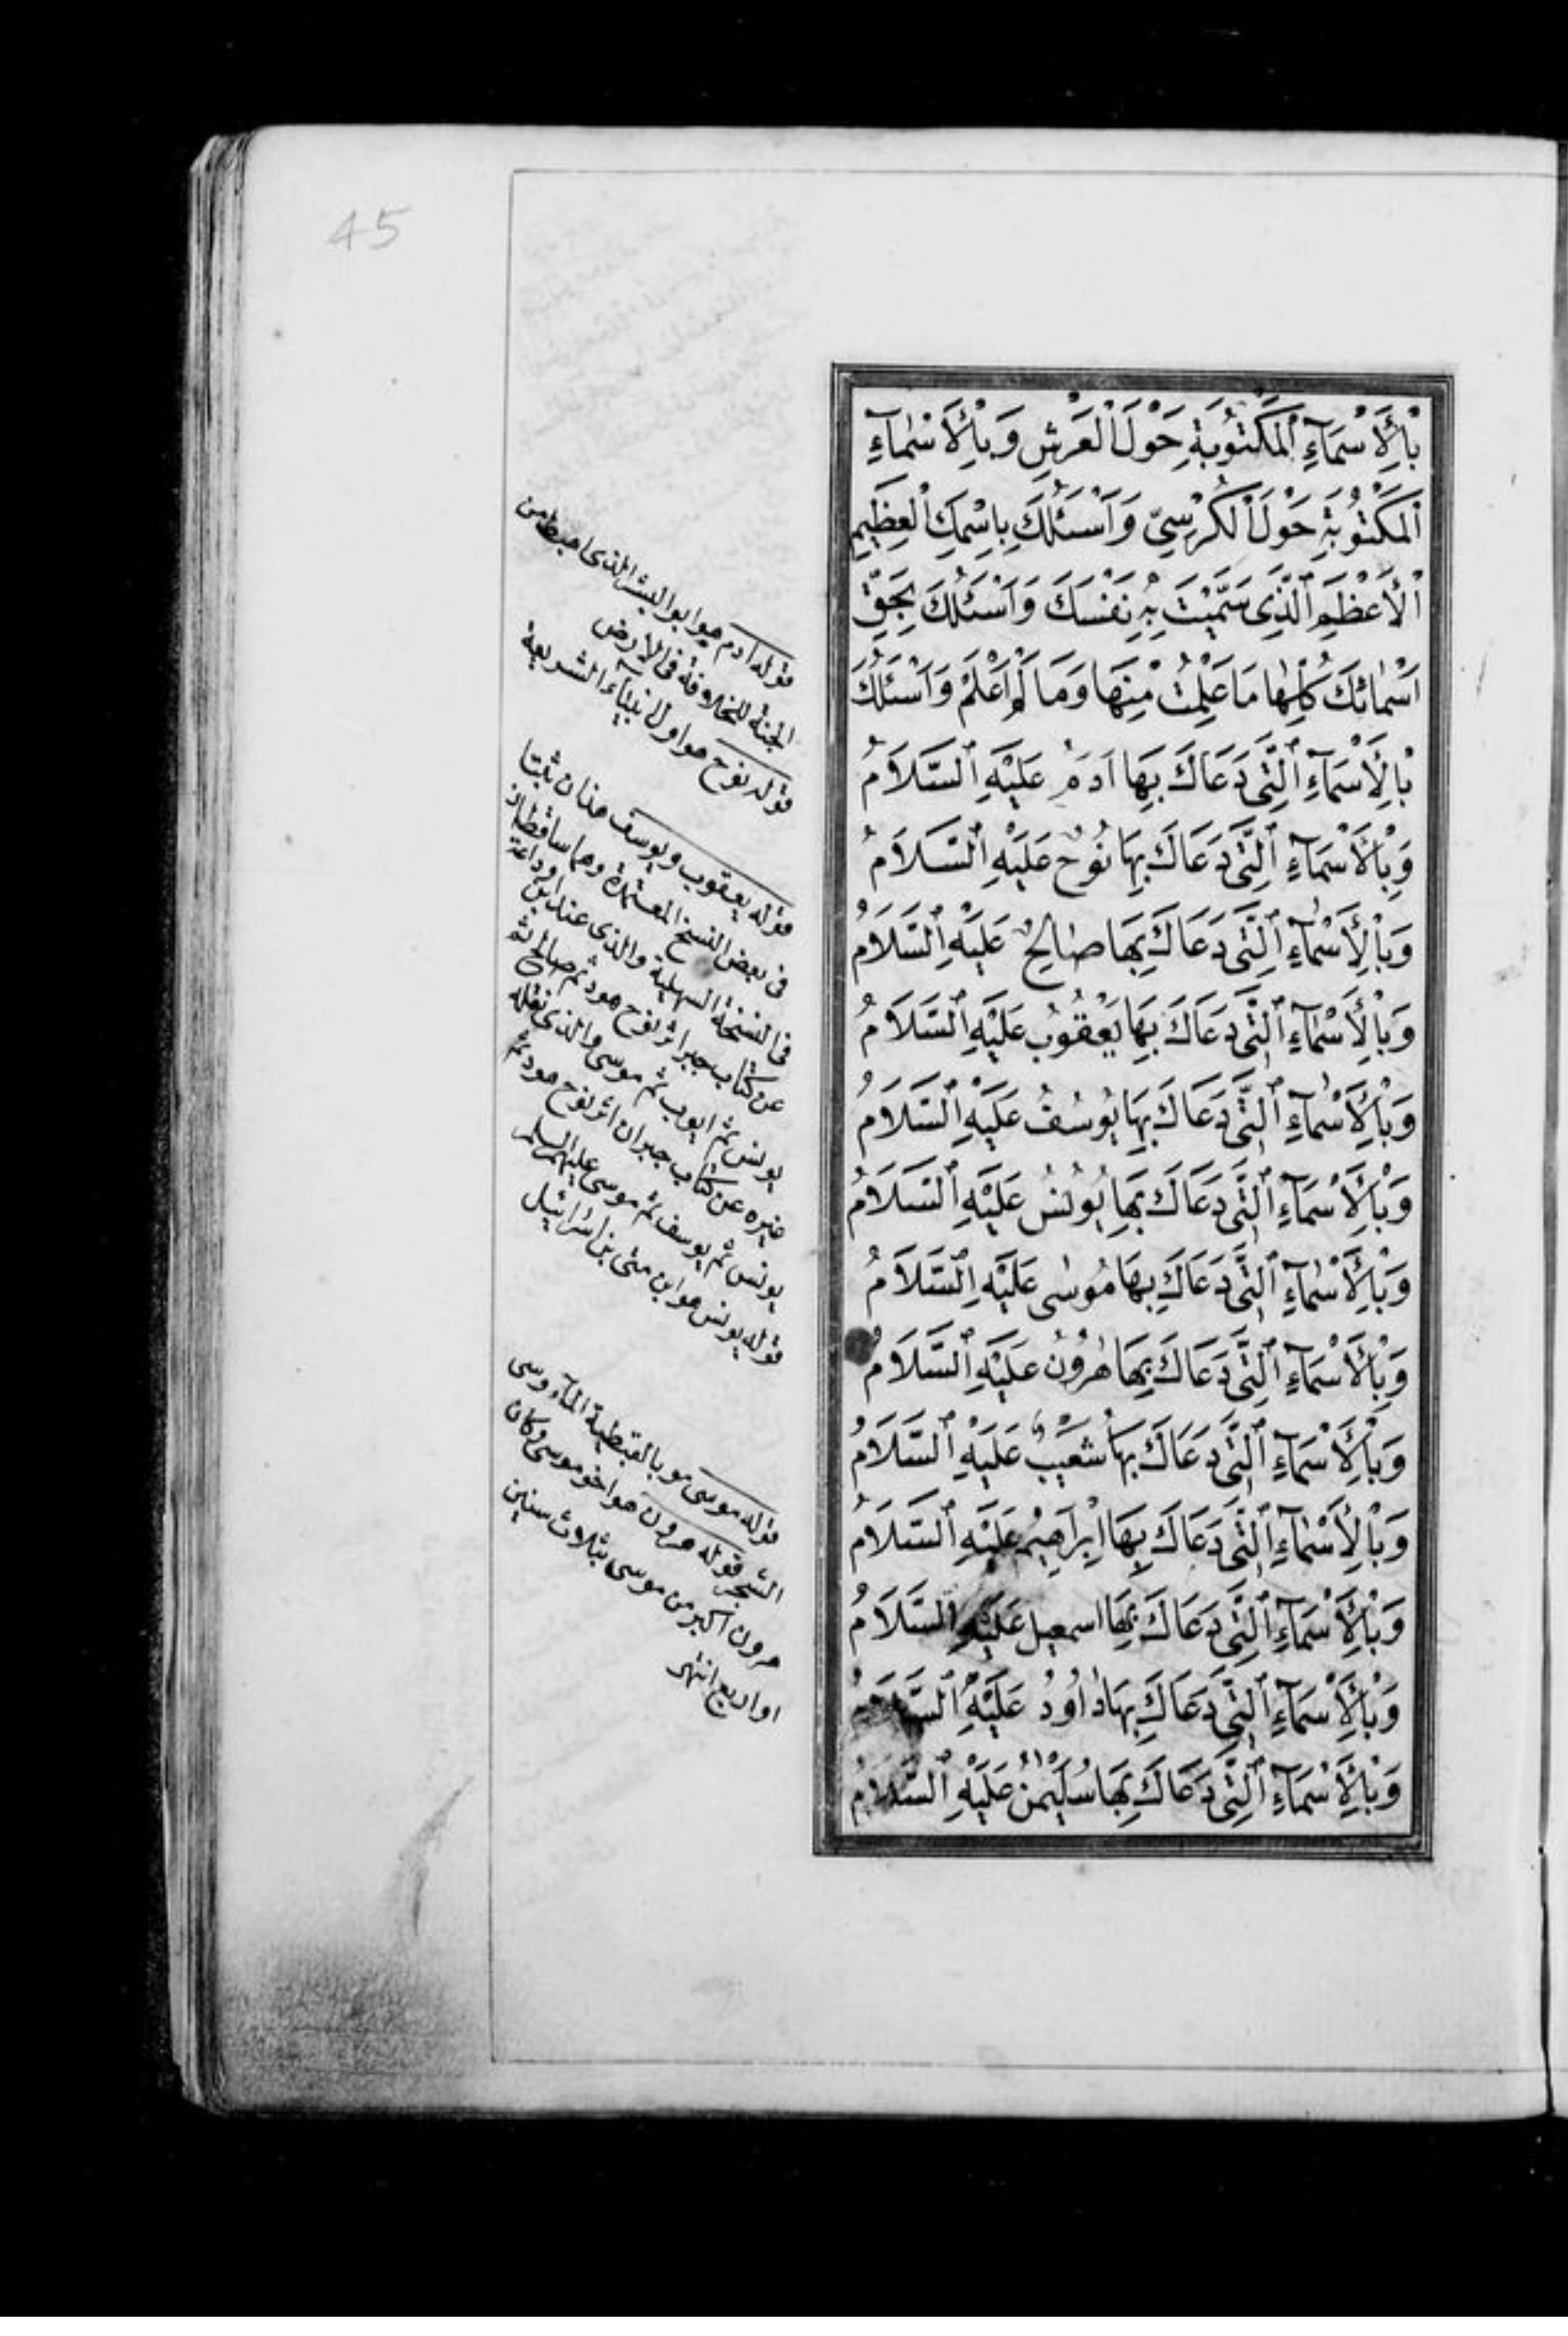 45
بِالْأَسْمَآءِ الْمَكْتُوبَةِ حَوْلَ الْعَرْشِ وَبِالْأَسْمَآءِ
الْمَكْتُوبَةِ حَوْلَ الْكُرْسِيِّ وَأَسْئَلُكَ بِاسْمِكَ الْعَظِيمِ
الْأَعْظَمِ الَّذِى سَمَّيْتَ بِهِ نَفْسَكَ وَأَسْئَلُكَ بِحَقِّ
أَسْمَائِكَ كُلِّهَا مَا عَلِمْتُ مِنْهَا وَمَا لَمْ أَعْلَمْ وَأَسْئَلُكَ
بِالْأَسْمَآءِ الَّتِى دَعَاكَ بِهَا اٰدَمُ عَلَيْهِ السَّلَامُ
وَبِالْأَسْمَآءِ الَّتِى دَعَاكَ بِهَا نُوحٌ عَلَيْهِ السَّلَامُ
وَبِالْأَسْمَآءِ الَّتِى دَعَاكَ بِهَا صَالِحٌ عَلَيْهِ السَّلَامُ
وَبِالْأَسْمَآءِ الَّتِى دَعَاكَ بِهَا يَعْقُوبُ عَلَيْهِ السَّلَامُ
وَبِالْأَسْمَآءِ الَّتِى دَعَاكَ بِهَا يُوسُفُ عَلَيْهِ السَّلَامُ
وَبِالْأَسْمَآءِ الَّتِى دَعَاكَ بِهَا يُونُسُ عَلَيْهِ السَّلَامُ
وَبِالْأَسْمَآءِ الَّتِى دَعَاكَ بِهَا مُوسٰى عَلَيْهِ السَّلَامُ
وَبِالْأَسْمَآءِ الَّتِى دَعَاكَ بِهَا هٰرُونُ عَلَيْهِ السَّلَامُ
وَبِالْأَسْمَآءِ الَّتِى دَعَاكَ بِهَا شُعَيْبٌ عَلَيْهِ السَّلَامُ
وَبِالْأَسْمَآءِ الَّتِى دَعَاكَ بِهَا إِبْرَاهِيمُ عَلَيْهِ السَّلَامُ
وَبِالْأَسْمَآءِ الَّتِى دَعَاكَ بِهَا اسمعيل عَلَيْهِ السَّلَامُ
وَبِالْأَسْمَآءِ الَّتِى دَعَاكَ بِهَا دَاوُدُ عَلَيْهِ السَّلَامُ
وَبِالْأَسْمَآءِ الَّتِى دَعَاكَ بِهَا سُلَيْمٰنُ عَلَيْهِ السَّلَامُ
قوله ادم هو ابو البشر الذى اهبط من
الجنة للخلافة فى الارض
قوله نوح هو اول انبيآء الشريعة
قوله يعقوب ويوسف هذان ثبتا
فى بعض النسخ المعتمدة وهما ساقطان
فى النسخة السهلية والذى عند ابن وداعة
عن كتاب جبر اثر نوح هود ثم صالح ثم
يونس ثم ايوب ثم موسى والذى نقله
غيره عن كتاب جبر ان اثر نوح هود ثم
يونس ثم يوسف ثم موسى عليهم السلام
قوله يونس هو ابن متى بن اسرائيل
قوله موسى مو بالقبطية المآء وسى
الشجر قوله هرون هو اخو موسى وكان
هرون اكبر من موسى بثلاث سنين
او اربع انتهى